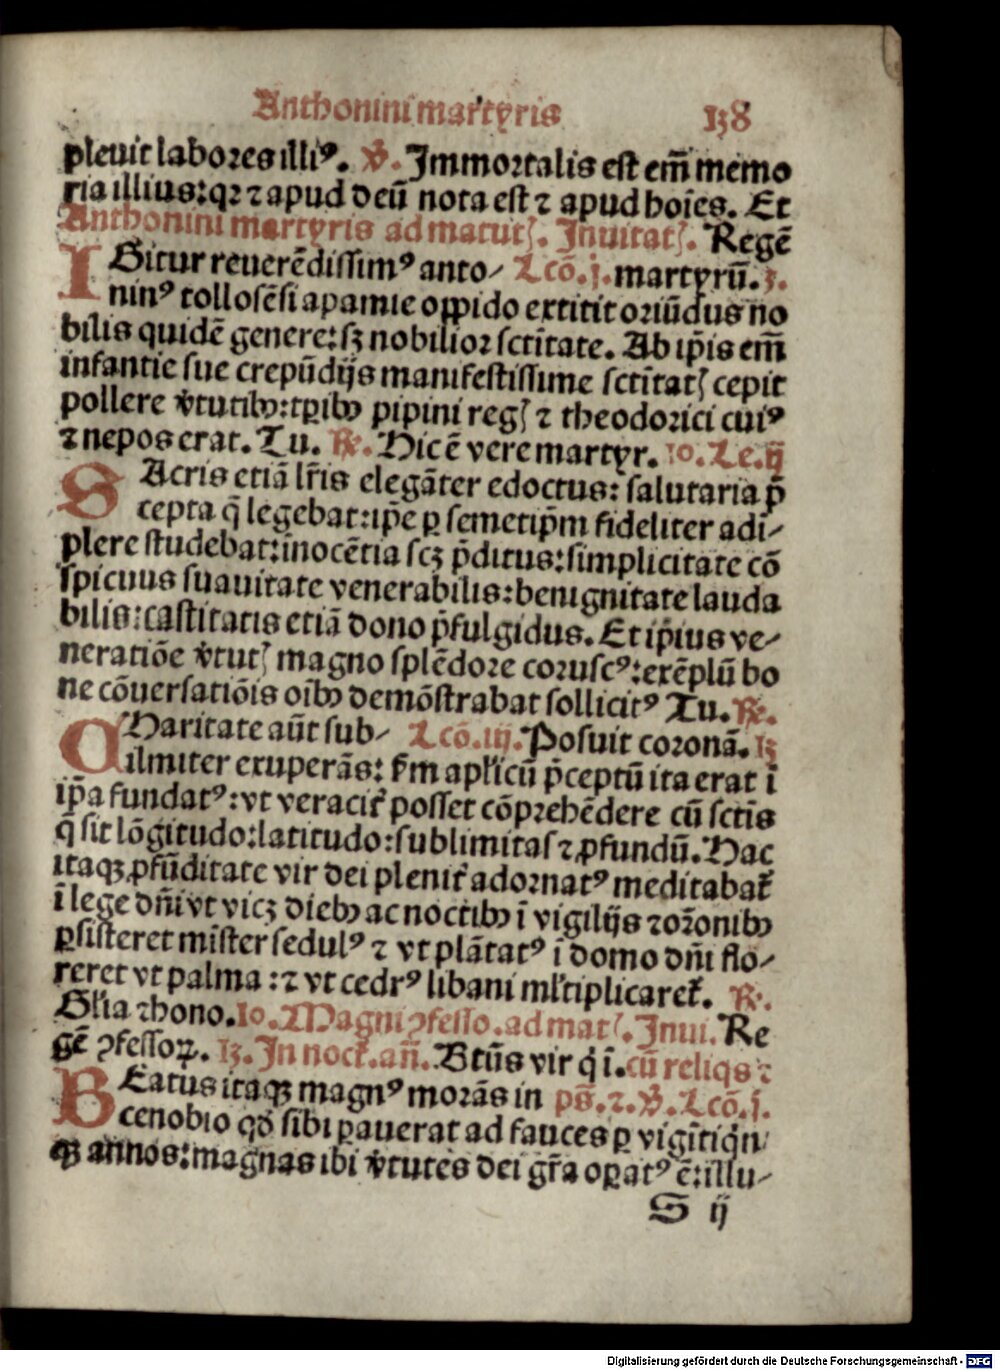 Anthonini martyris 138
pleuit labores illiꝰ. ℣. Immortalis est em̄ memo
ria illius: qꝛ ⁊ apud deū nota est ⁊ apud hoīes. Et
Anthonini martyris ad matutꝭ. Inuitatꝭ. Regē
IGitur reuerēdissimꝰ anto- Lcō. j. martyrū. ʒ.
ninꝰ tollosēsi apamie oppido extitit oriūdus no
bilis quidē genere: sꝫ nobilior sctītate. Ab ip̄is em̄
infantie sue crepūdijs manifestissime sctītatꝭ cepit
pollere v̄tutibꝫ: tꝑibꝫ pipini regꝭ ⁊ theodorici cuiꝰ
⁊ nepos erat. Tu. ℟. Hic ē vere martyr. 10. Le. ij
SAcris etiā lr̄is elegāter edoctus: salutaria p̄
cepta q̄ legebat: ip̄e ꝑ semetip̄m fideliter adi-
plere studebat: īnocētia scꝫ p̄ditus: simplicitate cō
spicuus suauitate venerabilis: benignitate lauda
bilis: castitatis etiā dono p̄fulgidus. Et ip̄ius ve-
neratiōe v̄tutꝭ magno splēdore coruscꝰ: exēplū bo
ne cōuersatiōis oībꝫ demōstrabat sollicitꝰ Tu. ℟.
CHaritate aūt sub- Lcō. iij. Posuit coronā. 1ʒ
ilmiter exuperās: fm apl̄icū p̄ceptū ita erat ī
ip̄a fundatꝰ: vt veracit̄ posset cōprehēdere cū sctīs
q̄ sit lōgitudo: latitudo: sublimitas ⁊ ꝓfundū. Hac
itaqꝫ ꝓfūditate vir dei plenit̄ adornatꝰ meditabat̄
ī lege dn̄i vt vicꝫ diebꝫ ac noctibꝫ ī vigilijs ⁊ or̄onibꝫ
ꝑsisteret mīster sedulꝰ ⁊ vt plātatꝰ ī domo dn̄i flo-
reret vt palma: ⁊ vt cedrꝰ libani ml̄tiplicaret̄. ℟.
Gl̄ia ⁊ hono. 10. Magni ꝯfesso. ad matꝭ. Inui. Re
gē ꝯfessoꝝ. 1ʒ. In noct̄. an̄. Btūs vir q̇ ī. cū reliqs ⁊
BEatus itaqꝫ magnꝰ morās in ps̄. ⁊. ℣. Lcō. j.
cenobio qd̄ sibi ꝑauerat ad fauces ꝑ vigītiq̇n
qꝫ annos: magnas ibi v̄tutes dei gr̄a oꝑatꝰ ē: illu-
S ij
Digitalisierung gefördert durch die Deutsche Forschungsgemeinschaft - DFG